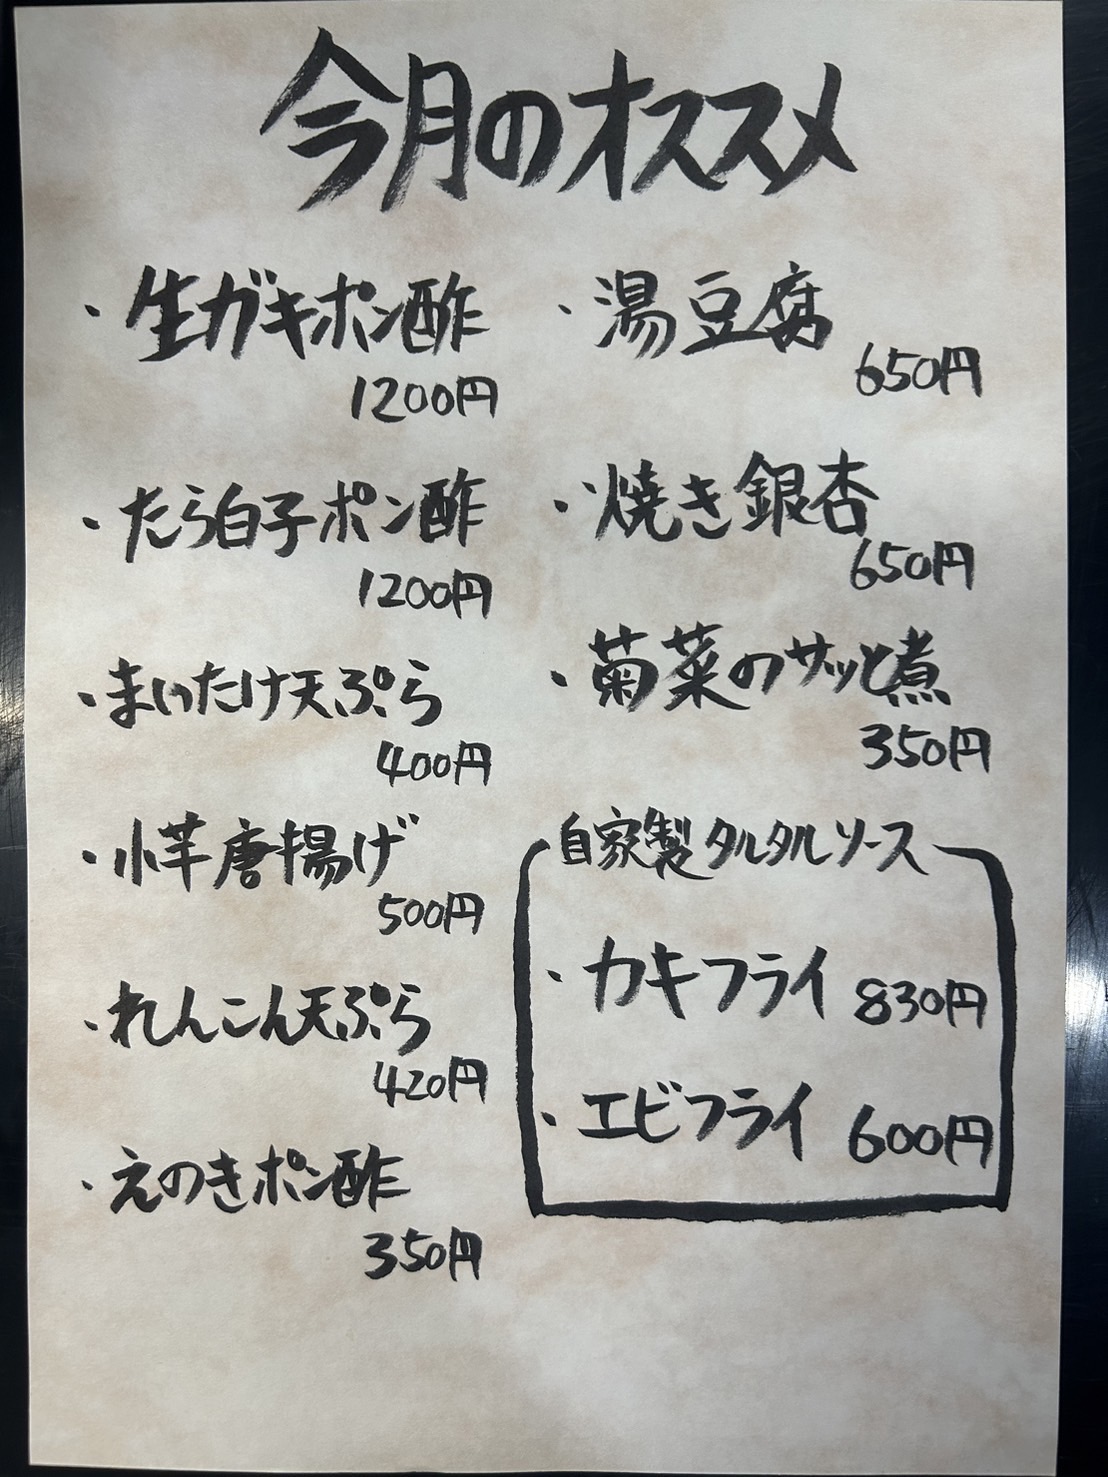 今月のオススメ
・生ガキポン酢
1200円
・たら白子ポン酢
1200円
・まいたけ天ぷら
400円
・小芋唐揚げ
500円
・れんこん天ぷら
420円
・えのきポン酢
350円
・湯豆腐
650円
・焼き銀杏
650円
・菊菜のサッと煮
350円
自家製タルタルソース
・カキフライ 830円
・エビフライ 600円